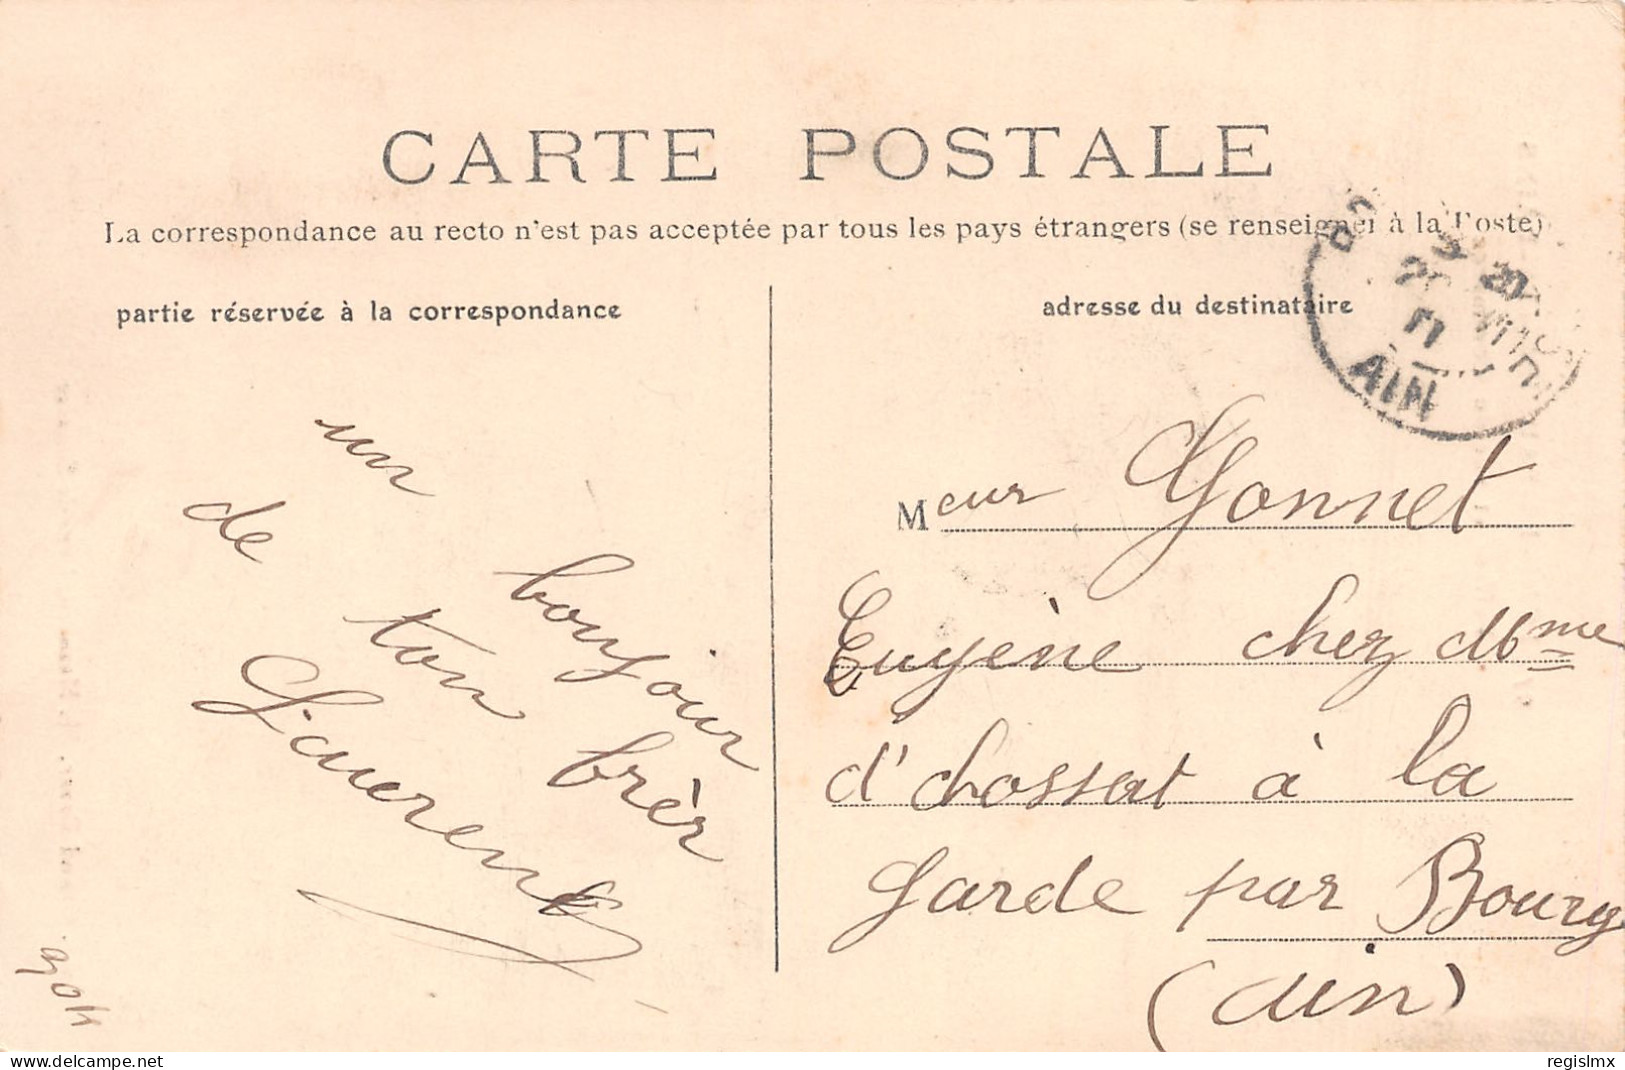 CARTE POSTALE
La correspondance au recto n'est pas acceptée par tous les pays étrangers (se renseigner à la Poste)
partie réservée à la correspondance
un bonjour
de ton frèr
Laurent
adresse du destinataire
AIN
Meur Gonnet
Eugène chez Mme
d'chossat à la
Garde par Bourg
(Ain)
www.delcampe.net
regislmx